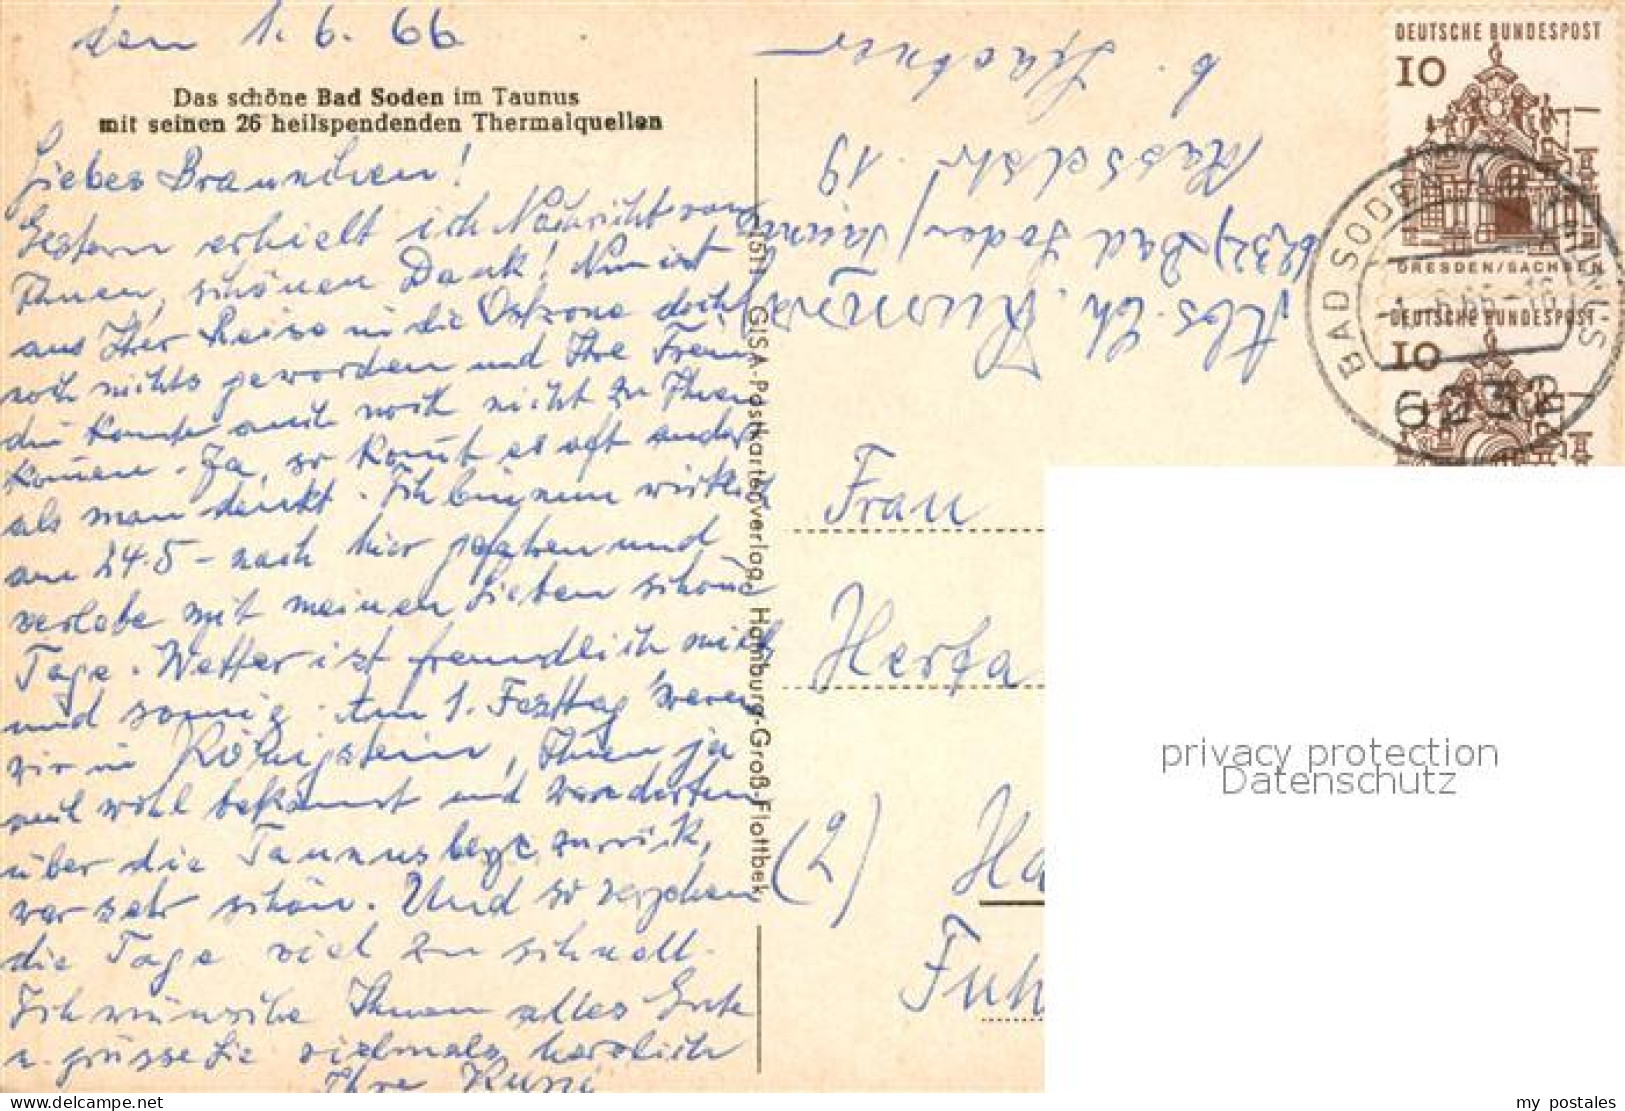 den 1.6.66
Das schöne Bad Soden im Taunus
mit seinen 26 heilspendenden Thermalquellen
Liebes Braunchen!
Gestern erhielt ich Nachricht von
Ihnen, schönen Dank! Nun ist
aus Ihrer Reise in die Ostzone doch
noch nichts geworden und Ihre Freun
din konnte auch noch nicht zu Ihnen
komen. Ja, so komt es oft anders
als man denkt. Ich bin nun wirklich
am 24.5 - nach hier gefahren und
verlebe mit meinen Lieben schöne
Tage. Wetter ist freundlich mild
und sonnig. Am 1. Festtag waren
wir in Königstein, Ihnen ja
auch wohl bekannt und wanderten
über die Taunusberge zurück,
war sehr schön. Und so vergehen
die Tage viel zu schnell.
Ich wünsche Ihnen alles Gute
u. grüsse Sie vielmals herzlich
Ihre
GISA-Postkartenverlag Hamburg-Groß Flottbek
Abs. Ch.
6232 Bad Soden/Taunus
19
b.
DEUTSCHE BUNDESPOST
10
DRESDEN/SACHSEN
DEUTSCHE BUNDESPOST
10
BAD SODEN TAUNUS
6232
Frau
Herta
(2) Ha
Fuh
privacy protection
Datenschutz
my postales